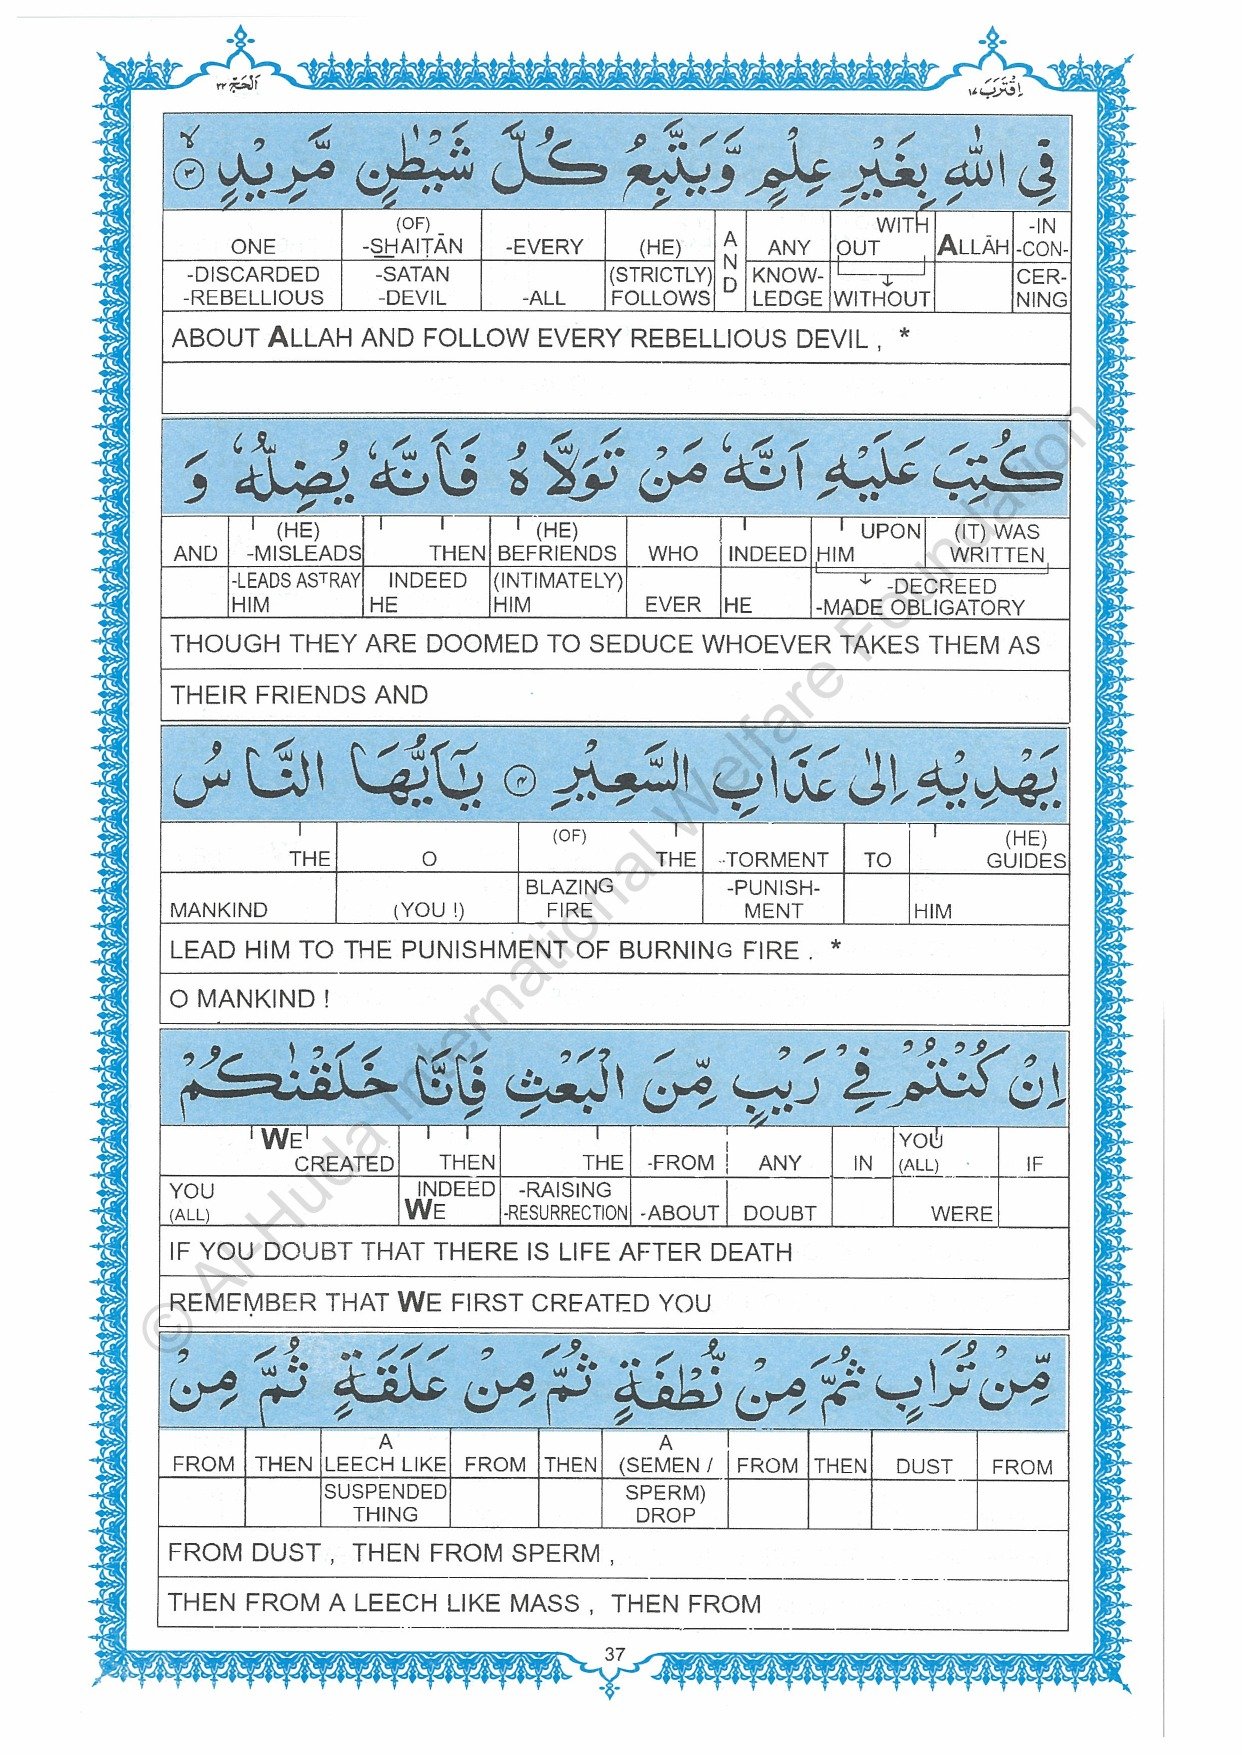 اَلْحَجّ ٢٢
اِقْتَرَبَ ١٧
فِي اللّٰهِ بِغَيْرِ عِلْمٍ وَّيَتَّبِعُ كُلَّ شَيْطٰنٍ مَّرِيْدٍ ۙ ٣
ONE (OF) -SHAIṬĀN -EVERY (HE) AND ANY WITH OUT ALLĀH -IN -CON-
-DISCARDED -REBELLIOUS -SATAN -DEVIL -ALL (STRICTLY) FOLLOWS KNOW- LEDGE WITHOUT CER- NING
ABOUT ALLAH AND FOLLOW EVERY REBELLIOUS DEVIL , *
كُتِبَ عَلَيْهِ اَنَّهٗ مَنْ تَوَلَّاهُ فَاَنَّهٗ يُضِلُّهٗ وَ
AND (HE) -MISLEADS THEN (HE) BEFRIENDS WHO INDEED UPON HIM (IT) WAS WRITTEN
-LEADS ASTRAY HIM INDEED HE (INTIMATELY) HIM EVER HE -DECREED -MADE OBLIGATORY
THOUGH THEY ARE DOOMED TO SEDUCE WHOEVER TAKES THEM AS
THEIR FRIENDS AND
يَهْدِيْهِ اِلٰى عَذَابِ السَّعِيْرِ ٤ يٰٓاَيُّهَا النَّاسُ
THE O (OF) THE -TORMENT TO (HE) GUIDES
MANKIND (YOU !) BLAZING FIRE -PUNISH- MENT HIM
LEAD HIM TO THE PUNISHMENT OF BURNING FIRE . *
O MANKIND !
اِنْ كُنْتُمْ فِيْ رَيْبٍ مِّنَ الْبَعْثِ فَاِنَّا خَلَقْنٰكُمْ
WE CREATED THEN THE -FROM ANY IN YOU (ALL) IF
YOU (ALL) INDEED WE -RAISING -RESURRECTION -ABOUT DOUBT WERE
IF YOU DOUBT THAT THERE IS LIFE AFTER DEATH
REMEMBER THAT WE FIRST CREATED YOU
مِّنْ تُرَابٍ ثُمَّ مِنْ نُّطْفَةٍ ثُمَّ مِنْ عَلَقَةٍ ثُمَّ مِنْ
FROM THEN A LEECH LIKE FROM THEN A (SEMEN / FROM THEN DUST FROM
SUSPENDED THING SPERM) DROP
FROM DUST , THEN FROM SPERM ,
THEN FROM A LEECH LIKE MASS , THEN FROM
37
© Al-Huda International Welfare Foundation